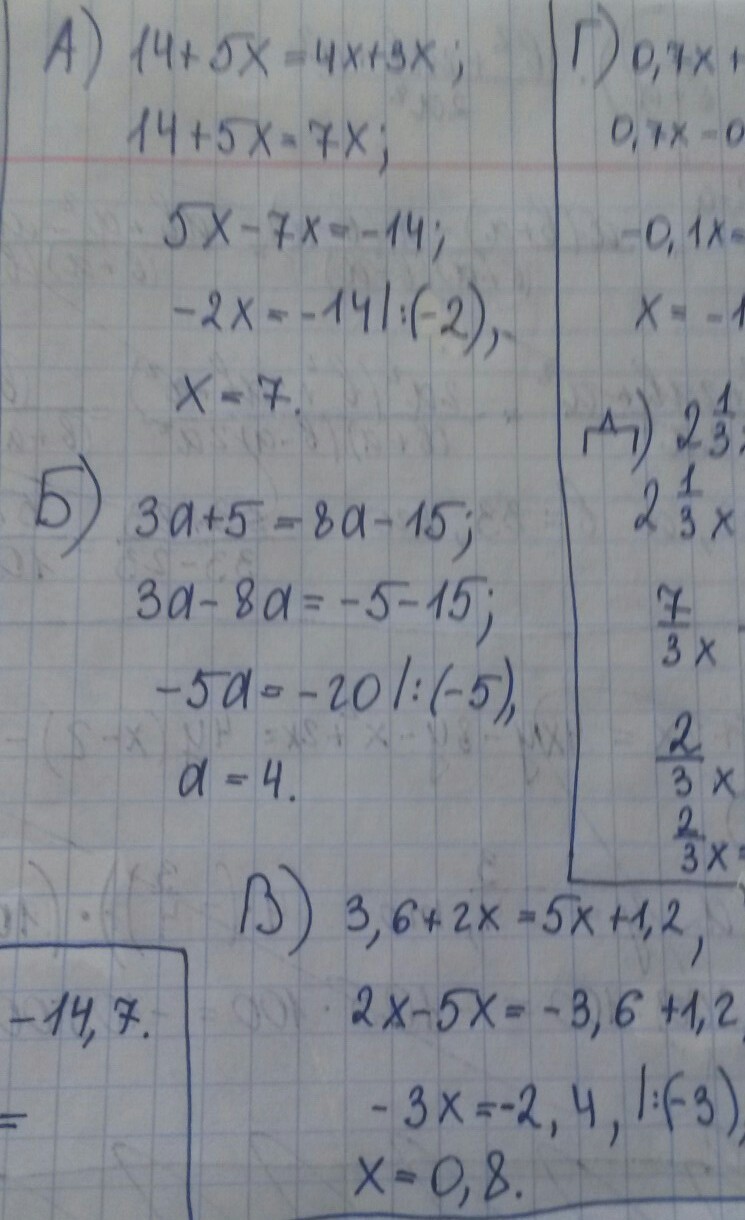 А) 14+5x=4x+3x;
14+5x=7x;
5x-7x=-14;
-2x=-14|:(-2),
x=7.
Б) 3a+5=8a-15;
3a-8a=-5-15;
-5a=-20|:(-5),
a=4.
В) 3,6+2x=5x+1,2,
2x-5x=-3,6+1,2,
-3x=-2,4,|:(-3),
x=0,8.
Г) 0,7x+
0,7x-0
-0,1x=
x=-1
Д) 2 1/3
2 1/3 x
7/3 x
2/3 x
2/3 x=
-14,7.
=